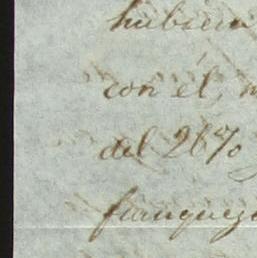 hubiera
con el, n
del 26%
franqueza